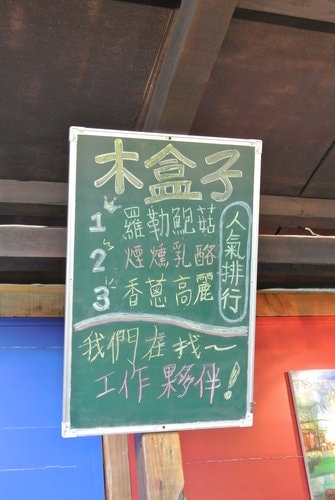 木盒子
1 羅勒鮑菇
2 煙燻乳酪
3 香蔥高麗
人氣排行
我們在找~
工作夥伴!